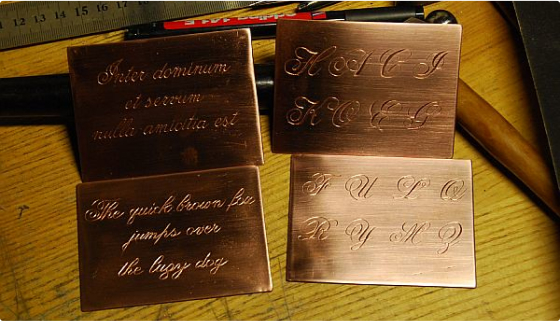 edding 141 F
Inter dominum
et servum
nulla amicitia est
H A C I
K O E G
The quick brown fox
jumps over
the lazy dog
F U L Q
R Y M Z